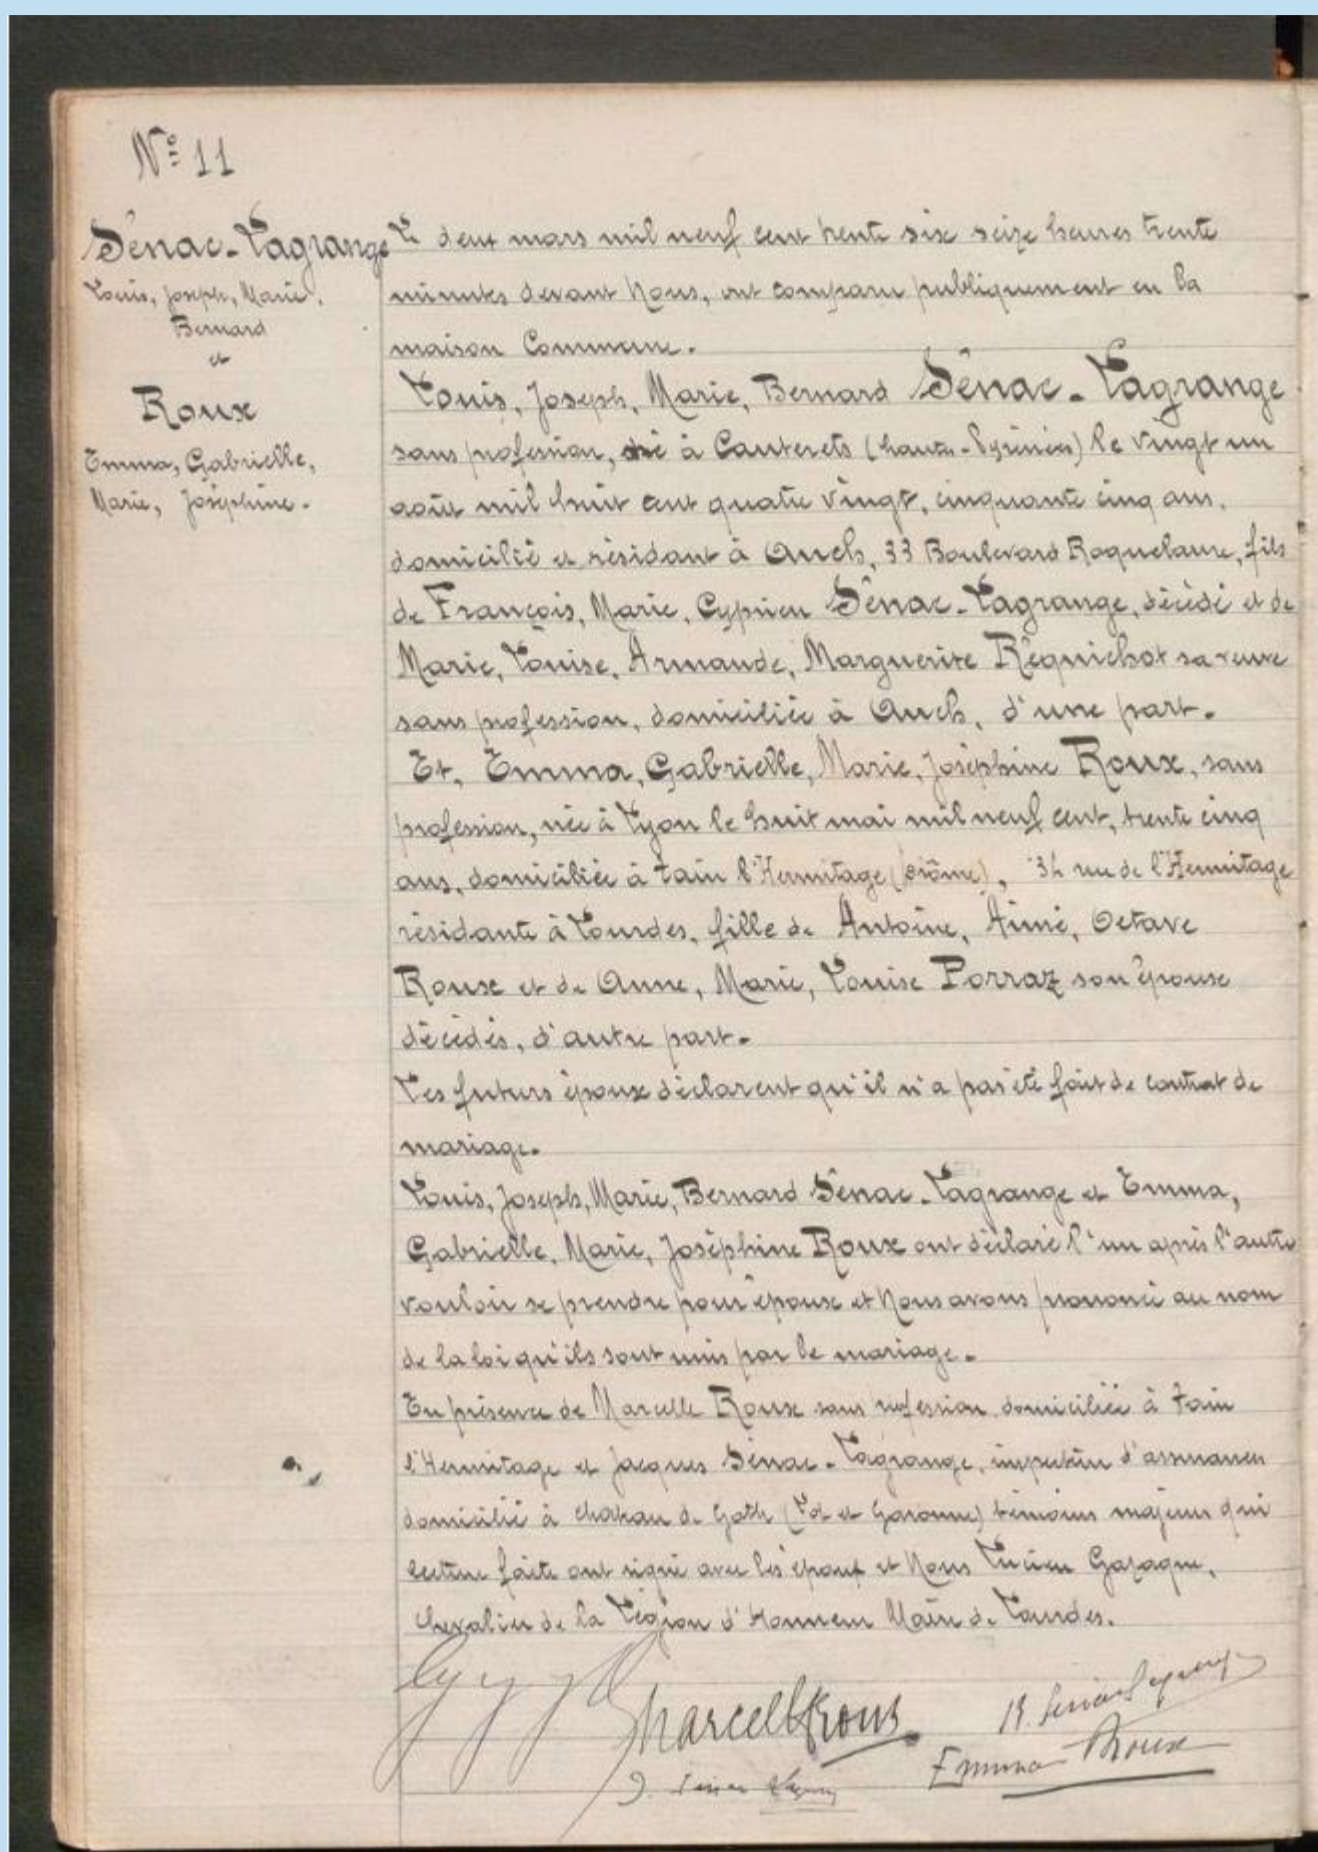 N° 11
Sénac-Lagrange
Louis, Joseph, Marie,
Bernard
et
Roux
Emma, Gabrielle,
Marie, Joséphine.
Le deux mars mil neuf cent trente six seize heures trente
minutes devant Nous, ont comparu publiquement en la
maison Commune.
Louis, Joseph, Marie, Bernard Sénac-Lagrange
sans profession, né à Cauterets (hautes-Pyrénées) le vingt un
août mil huit cent quatre vingt, cinquante cinq ans,
domicilié et résidant à Auch, 33 Boulevard Roquelaure, fils
de François, Marie, Cyprien Sénac-Lagrange, décédé et de
Marie, Louise, Armande, Marguerite Réquichot sa veuve
sans profession, domiciliée à Auch, d'une part.
Et, Emma, Gabrielle, Marie, Joséphine Roux, sans
profession, née à Lyon le huit mai mil neuf cent, trente cinq
ans, domiciliée à Tain l'Hermitage (Drôme), rue de l'Hermitage
résidante à Lourdes, fille de Antoine, Aimé, Octave
Roux et de Anne, Marie, Louise Porraz son épouse
décédés, d'autre part.
Les futurs époux déclarent qu'il n'a pas été fait de contrat de
mariage.
Louis, Joseph, Marie, Bernard Sénac-Lagrange et Emma,
Gabrielle, Marie, Joséphine Roux ont déclaré l'un après l'autre
vouloir se prendre pour époux et Nous avons prononcé au nom
de la loi qu'ils sont unis par le mariage.
En présence de Marcelle Roux sans profession domiciliée à Tain
l'Hermitage et Jacques Sénac-Lagrange, inspecteur d'assurances
domicilié à chateau de (Lot et Garonne) témoins majeurs qui
lecture faite ont signé avec les époux et Nous Lucien Gazagne,
Chevalier de la Légion d'Honneur Maire de Lourdes.
Marcelle Roux
B. Sénac Lagrange
J. Sénac Lagrange
Emma Roux